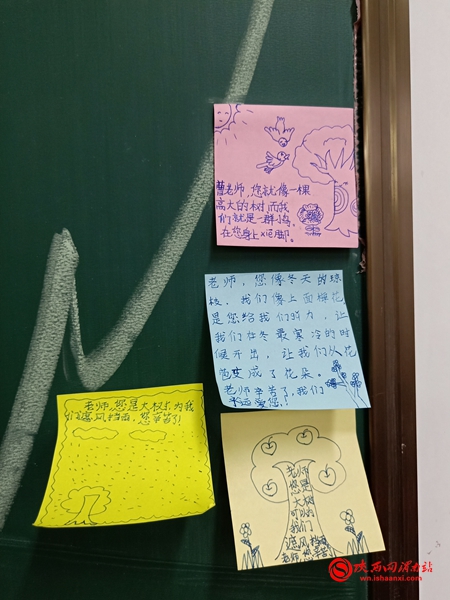 曹老师,您就像一棵
高大的树,而我
们就是一群小鸟,
在您身上
老师,您像冬天的
枝,我们像上面棉花
是您给我们的力,让
我们在冬最寒冷的时
候开出,让我们从花
变成了花朵。
老师辛苦了,我们
爱您!
老师,您是大树,为我
们遮风挡雨,您辛苦了!
老师
您是
大树
可以为
我们
遮风挡雨
老师,您辛苦
陕西网渭南站
wn.ishaanxi.com